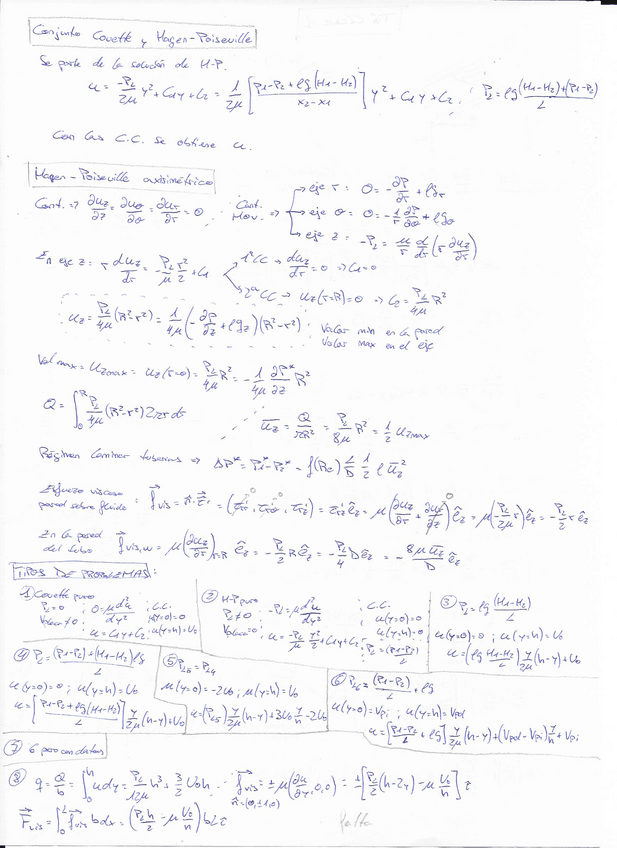 Conjunto Couette y Hagen-Poiseville
Se parte de la solución de H-P.
u = -P_L/2μ y² + C₁y + C₂ = 1/2μ [P1-P2+ρg(H1-H2) / x2-x1] y² + C₁y + C₂ ; P_L = ρg(H1-H2)+(P1-P2) / L
Con las C.C. se obtiene u.
Hagen-Poiseville axisimétrico
Cont. ⇒ ∂u_z/∂z = ∂u_θ/∂θ = ∂u_r/∂r = 0.
Cant. Mov. ⇒
eje r: 0 = -∂P/∂r + ρg_r
eje θ: 0 = -1/r ∂P/∂θ + ρg_θ
eje z: -P_L = μ/r d/dr (r ∂u_z/∂r)
En eje z: r du_z/dr = -P_L/μ r²/2 + C₁
1ª CC → du_z/dr = 0 → C₁ = 0
2ª CC → u_z(r=R) = 0 → C₂ = P_L/4μ R²
u_z = P_L/4μ (R²-r²) = 1/4μ (-∂P/∂z + ρg_z)(R²-r²)
Valor min en la pared
Valor max en el eje
Val max = u_zmax = u_z(r=0) = P_L/4μ R² = -1/4μ ∂P*/∂z R²
Q = ∫₀ᴿ P_L/4μ (R²-r²) 2πr dr
ū_z = Q/πR² = P_L/8μ R² = 1/2 u_zmax
Régimen laminar tuberías ⇒ ΔP* = P1*-P2* = f(Re) L/D 1/2 ρ ū_z²
Esfuerzo viscoso pared sobre fluido: f_vis = n·τ' = (τ'_rr, τ'_rθ, τ'_rz) = τ'_rz ê_z = μ(∂u_z/∂r + ∂u_r/∂z) ê_z = μ(-P_L/2μ r) ê_z = -P_L/2 r ê_z
En la pared del tubo f_vis,w = μ(∂u_z/∂r)_r=R ê_z = -P_L/2 R ê_z = -P_L/4 D ê_z = -8μ ū_z/D ê_z
TIPOS DE PROBLEMAS:
① Couette puro
P_L = 0 ; 0 = μ d²u/dy² ; C.C.
≠ 0 ; u = C₁y + C₂ ; u(y=0)=0
u(y=h) = U₀
② H-P puro
P_L ≠ 0 ; -P_L = μ d²u/dy² ; C.C.
= 0 ; u = -P_L/μ y²/2 + C₁y + C₂
u(y=0)=0
u(y=h)=0
P_L = (P1-P2)/L
③ P_L = ρg (H1-H2)/L
u(y=0)=0 ; u(y=h) = U₀
u = (ρg (H1-H2)/L) y/2μ (h-y) + U₀
④ P_L = (P1-P2)+(H1-H2)ρg / L
u(y=0)=0 ; u(y=h) = U₀
u = [P1-P2+ρg(H1-H2) / L] y/2μ (h-y) + U₀
⑤ P_L5 = P_L4
u(y=0) = -2U₀ ; u(y=h) = U₀
u = (P_L5) y/2μ (h-y) + 3U₀ y/h - 2U₀
⑥ P_L6 = (P1-P2)/L + ρg
u(y=0) = V_pi ; u(y=h) = V_pd
u = [P1-P2/L + ρg] y/2μ (h-y) + (V_pd - V_pi) y/h + V_pi
⑦ 6 pero con datos
⑧ q = Q/b = ∫₀ʰ u dy = P_L/12μ h³ + 3/2 U₀h ∴ f_vis = ±μ(∂u/∂y, 0, 0) = ±[P_L/2 (h-2y) - μ U₀/h] i
n = (0, ±1, 0)
F_vis = ∫₀ᴸ f_vis b dx = (P_L h/2 - μ U₀/h) bL i
falta